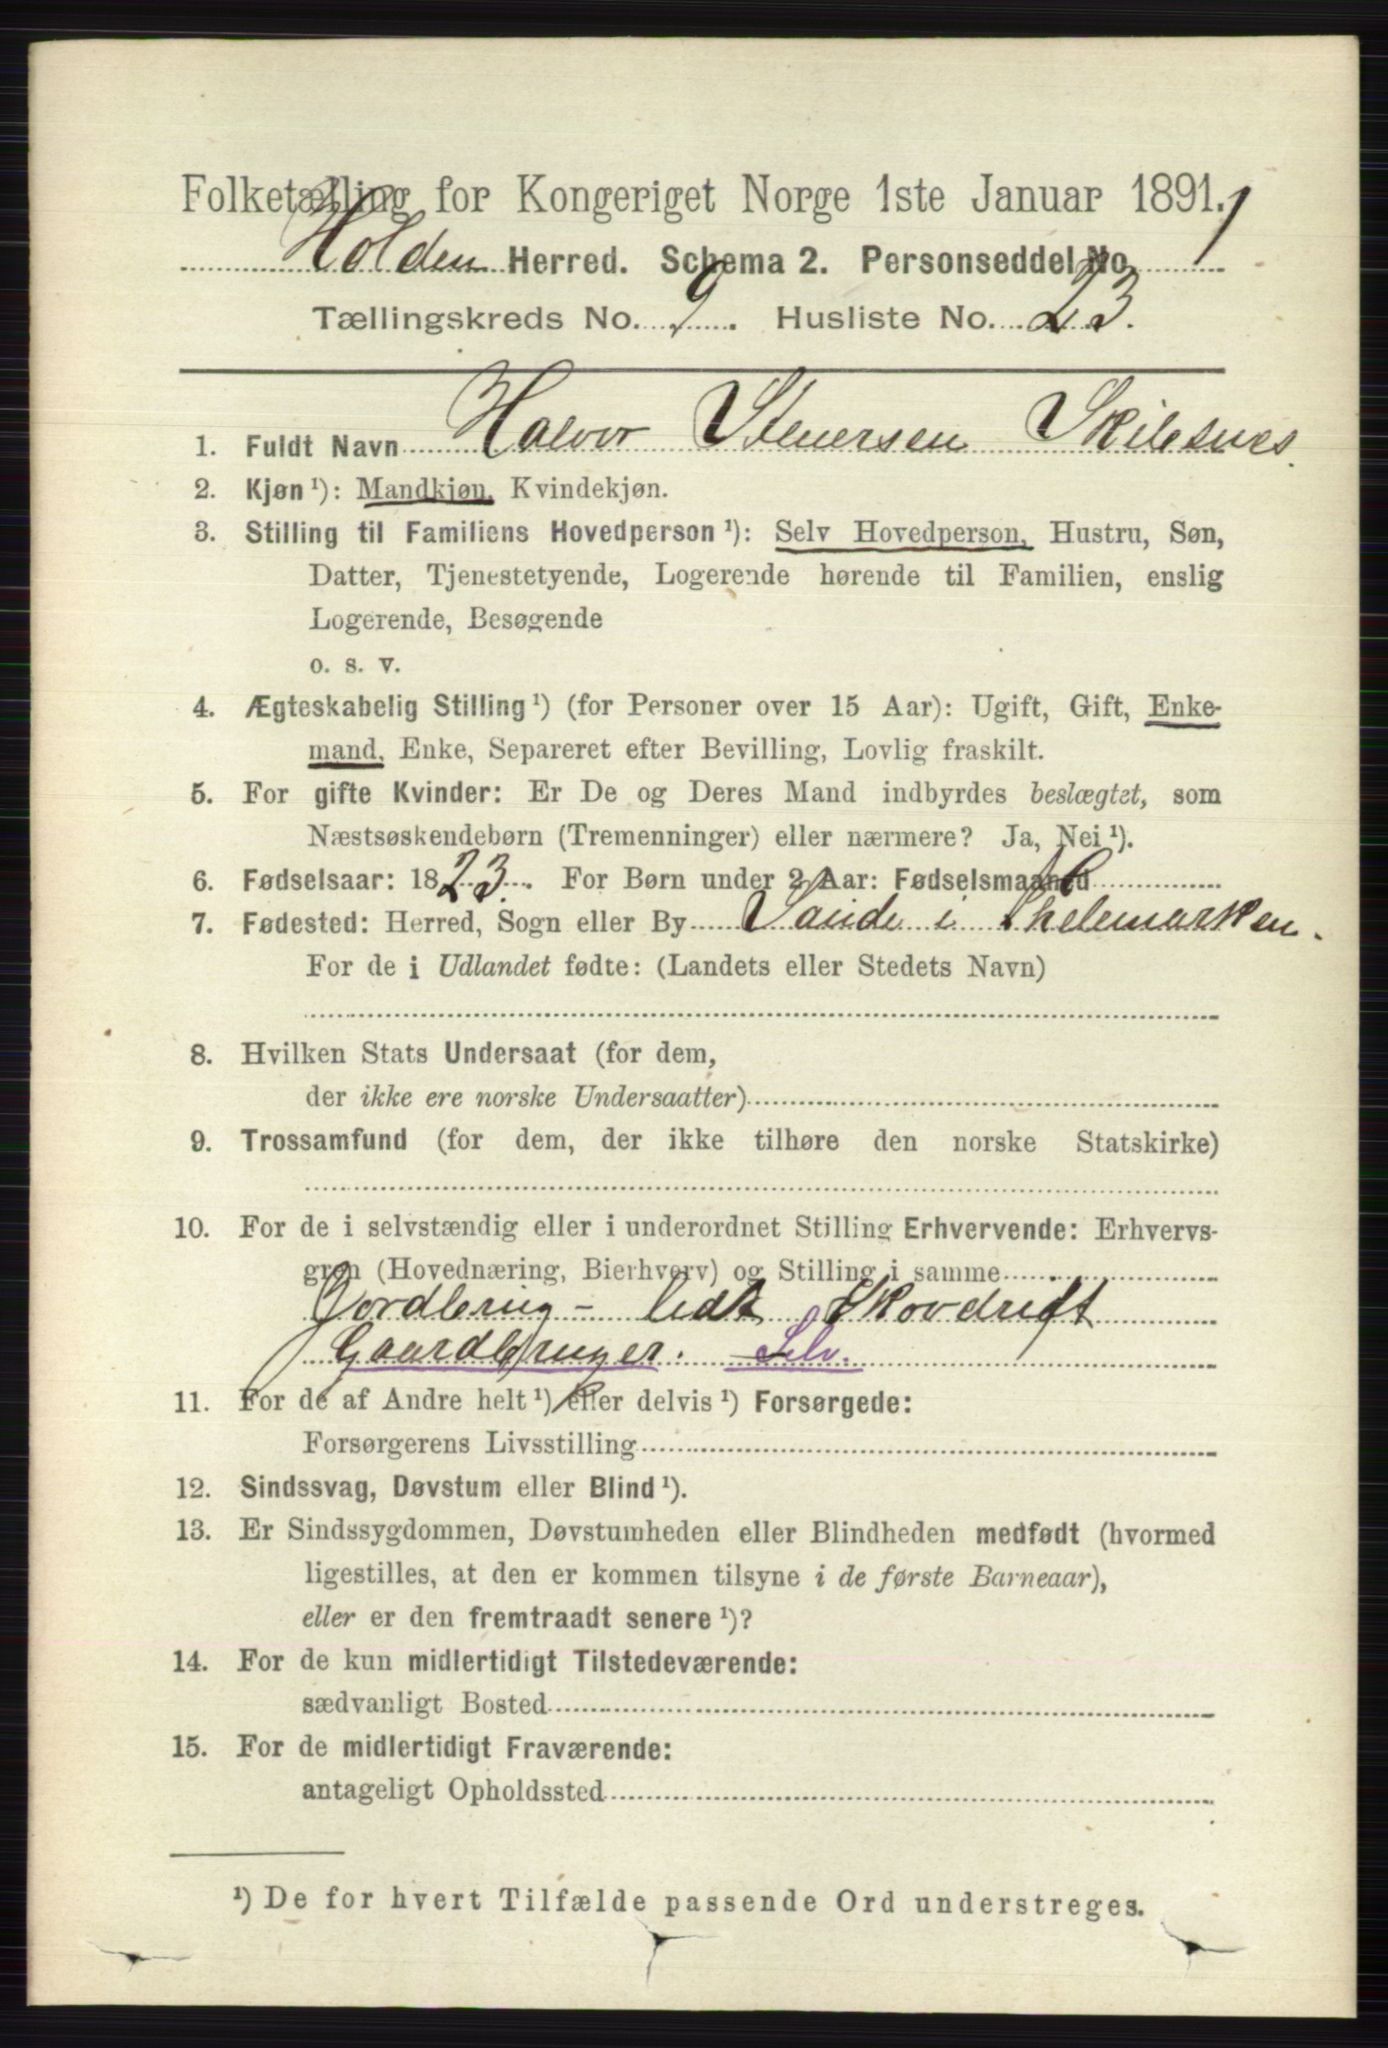 Folketælling for Kongeriget Norge 1ste Januar 1891.
Holden Herred. Schema 2. Personseddel No. 1
Tællingskreds No. 9. Husliste No. 23.
1. Fuldt Navn Halvor Stenersen Skilesnes.
2. Kjøn ¹): Mandkjøn, Kvindekjøn.
3. Stilling til Familiens Hovedperson ¹): Selv Hovedperson, Hustru, Søn,
Datter, Tjenestetyende, Logerende hørende til Familien, enslig
Logerende, Besøgende
o. s. v.
4. Ægteskabelig Stilling ¹) (for Personer over 15 Aar): Ugift, Gift, Enke-
mand, Enke, Separeret efter Bevilling, Lovlig fraskilt.
5. For gifte Kvinder: Er De og Deres Mand indbyrdes beslægtet, som
Næstsøskendebørn (Tremenninger) eller nærmere? Ja, Nei ¹).
6. Fødselsaar: 1823. For Børn under 2 Aar: Fødselsmaaned
7. Fødested: Herred, Sogn eller By Saude i Thelemarken.
For de i Udlandet fødte: (Landets eller Stedets Navn)
8. Hvilken Stats Undersaat (for dem,
der ikke ere norske Undersaatter)
9. Trossamfund (for dem, der ikke tilhøre den norske Statskirke)
10. For de i selvstændig eller i underordnet Stilling Erhvervende: Erhvervs-
gren (Hovednæring, Bierhverv) og Stilling i samme
Jordbrug - lidt Skovdrift
Gaardbruger. Selv.
11. For de af Andre helt ¹) eller delvis ¹) Forsørgede:
Forsørgerens Livsstilling
12. Sindssvag, Døvstum eller Blind ¹).
13. Er Sindssygdommen, Døvstumheden eller Blindheden medfødt (hvormed
ligestilles, at den er kommen tilsyne i de første Barneaar),
eller er den fremtraadt senere ¹)?
14. For de kun midlertidigt Tilstedeværende:
sædvanligt Bosted
15. For de midlertidigt Fraværende:
antageligt Opholdssted
¹) De for hvert Tilfælde passende Ord understreges.